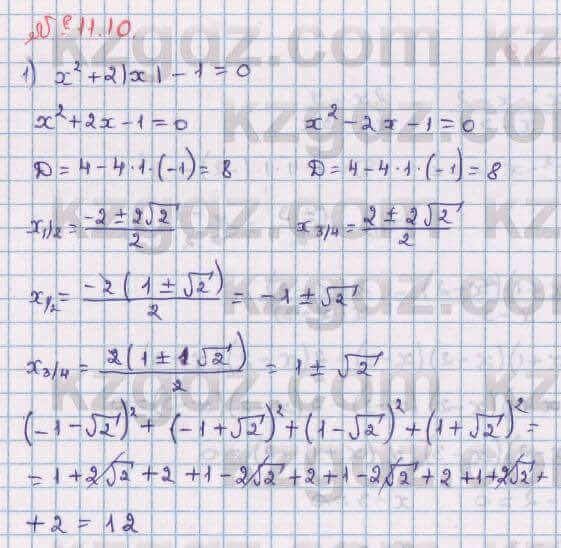 № 11.10.
1) x² + 2|x| - 1 = 0
x² + 2x - 1 = 0 x² - 2x - 1 = 0
D = 4 - 4·1·(-1) = 8 D = 4 - 4·1·(-1) = 8
x₁/₂ = (-2 ± 2√2)/2 x₃/₄ = (2 ± 2√2)/2
x₁/₂ = (-2(1 ± √2))/2 = -1 ± √2
x₃/₄ = (2(1 ± 1√2))/2 = 1 ± √2
(-1 - √2)² + (-1 + √2)² + (1 - √2)² + (1 + √2)² =
= 1 + 2√2 + 2 + 1 - 2√2 + 2 + 1 - 2√2 + 2 + 1 + 2√2 +
+ 2 = 12
kzgdz.com